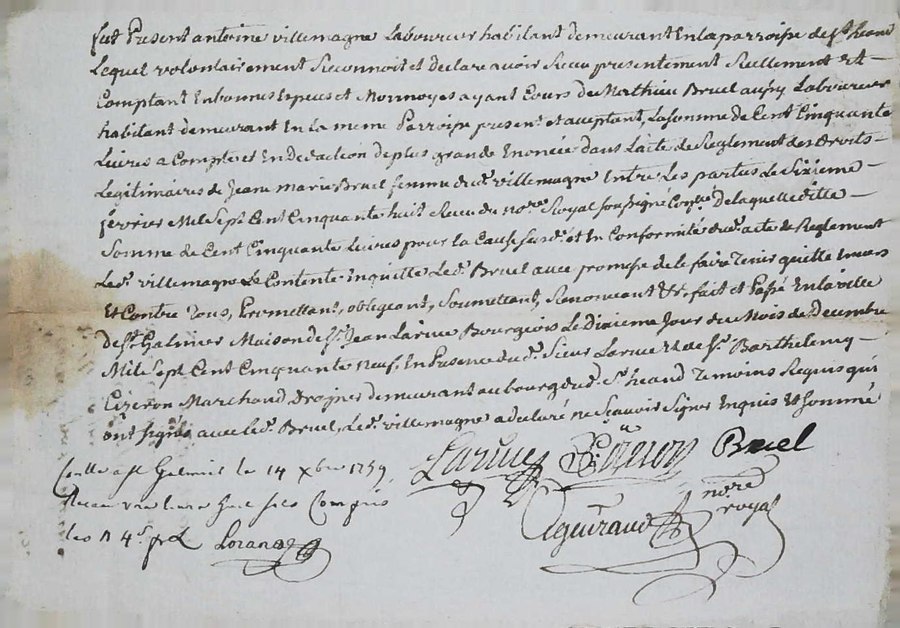 fut Present antoine villemagne Laboureur habitant demeurant En la parroisse de st heand
Lequel volontairement Reconnoit et declare avoir Receu presentement Reellement Et
Comptant En bonnes Especes et Monnoyes ayant Cours de Mathieu Bruel aussy Laboureur
habitant demeurant En la meme Parroisse present et acceptant, La somme de Cent Cinquante
Livres a Compte et En Deduction de plus grande Enoncée dans L'acte de Reglement des Droits
Legitimaires de Jeane marie Bruel femme dud. villemagne Entre Les parties Le Sixieme
février Mil Sept Cent Cinquante huit Receu du nore Royal soussigné de laquelle ditte
Somme de Cent Cinquante Livres pour la Cause susd. et En Conformité dud. acte de Reglement
Led. villemagne Se Contente En quitte Led. Bruel avec promesse de le faire Tenir quitte Envers
Et Contre Tous, Promettant, obligeant, Soumettant, Renonceant &c. fait et Passé En la ville
de St Galmier Maison de Sr. Jean Larue Bourgeois Le Dixieme Jour du Mois de Decembre
Mil Sept Cent Cinquante Neuf, En Presence dud. Sieur Larue Et de Sr. Barthelemy
Cizeron Marchand Drapier demeurant au bourg dud. St heand Temoins Requis qui
ont signés avec led. Bruel, Led. villemagne a declaré ne Scavoir Signer Enquis Et Sommé
Larue Cizeron Bruel
Conllé a st Galmier le 14 xbre 1759
Receu une livre
les 4s. pL Lorande
Eguiraud nore
royal